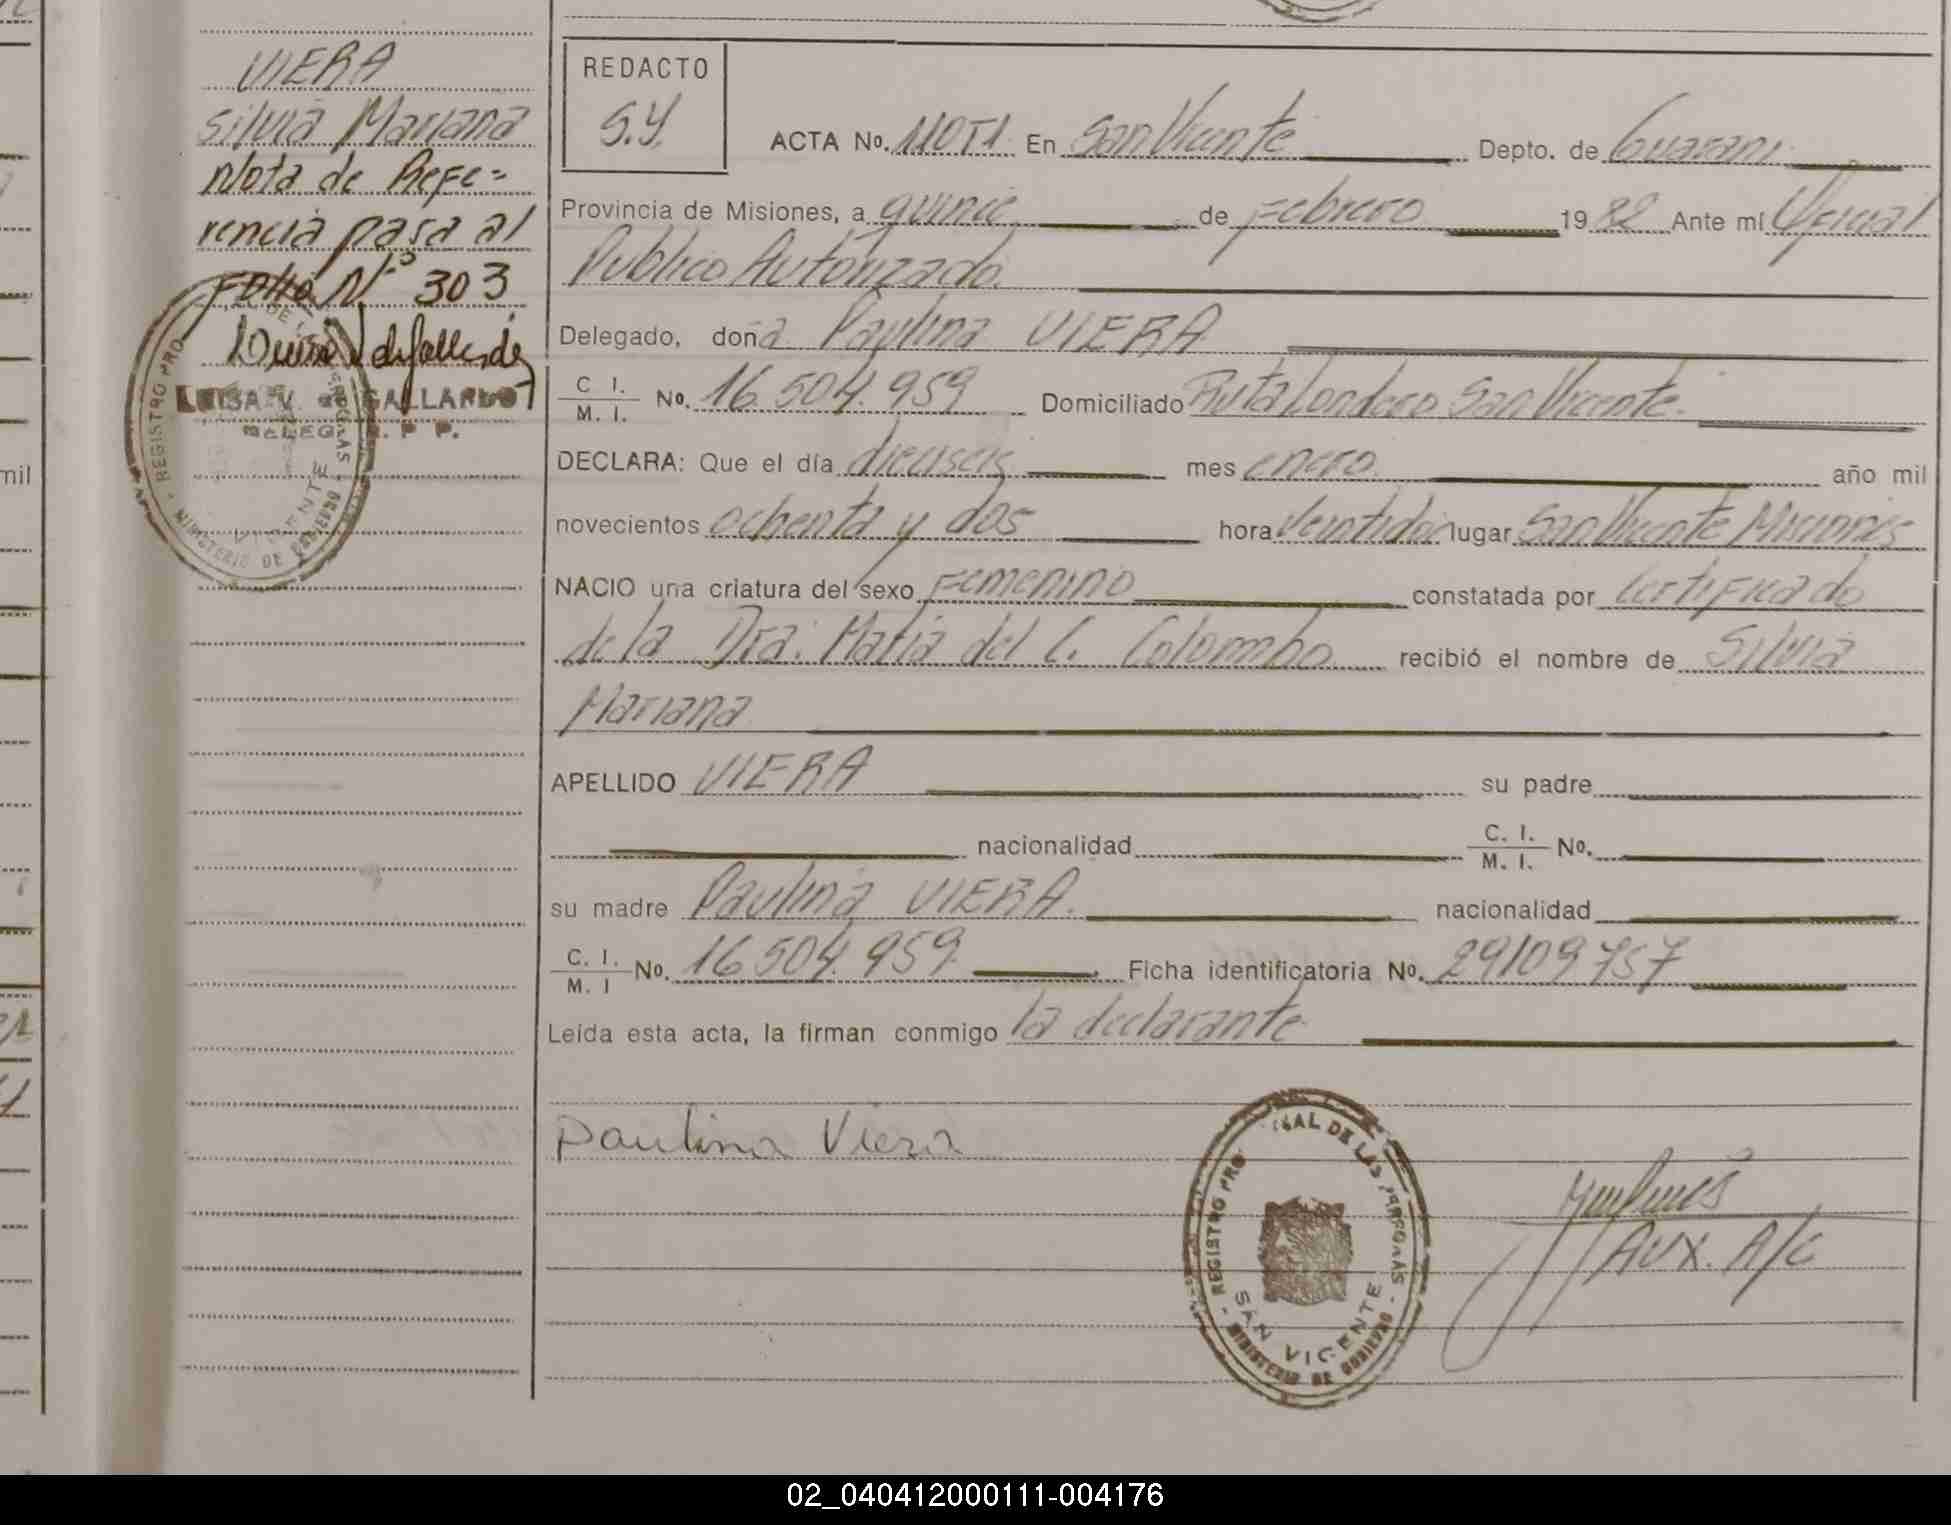 VIERA
Silvia Mariana
Nota de Refe=
rencia pasa al
Folio Nº 303
LUISA V. de GALLARDO
DELEG. R. P. P.
REGISTRO PRO
MINISTERIO DE GOBIERNO
VICENTE
REDACTO
S.Y.
ACTA No. 110T1 En San Vicente Depto. de Guarani
Provincia de Misiones, a quince de Febrero 1982 Ante mí Oficial
Publico Autorizado.
Delegado, doña Paulina VIERA
C. I. / M. I. No. 16.504.959 Domiciliado Ruta Londero San Vicente.
DECLARA: Que el día dieciseis mes enero. año mil
novecientos ochenta y dos hora veintidos lugar San Vicente Misiones
NACIO una criatura del sexo Femenino constatada por Certificado
de la Dra. Maria del C. Colombo recibió el nombre de Silvia
Mariana
APELLIDO VIERA su padre
nacionalidad C. I. / M. I. No.
su madre Paulina VIERA. nacionalidad
C. I. / M. I No. 16.504.959. Ficha identificatoria No. 29109757
Leída esta acta, la firman conmigo la declarante
Paulina Viera
REGISTRO PRO IAL DE LAS PERSONAS
SAN VICENTE
MINISTERIO DE GOBIERNO
AUX. A/C
mil
02_040412000111-004176